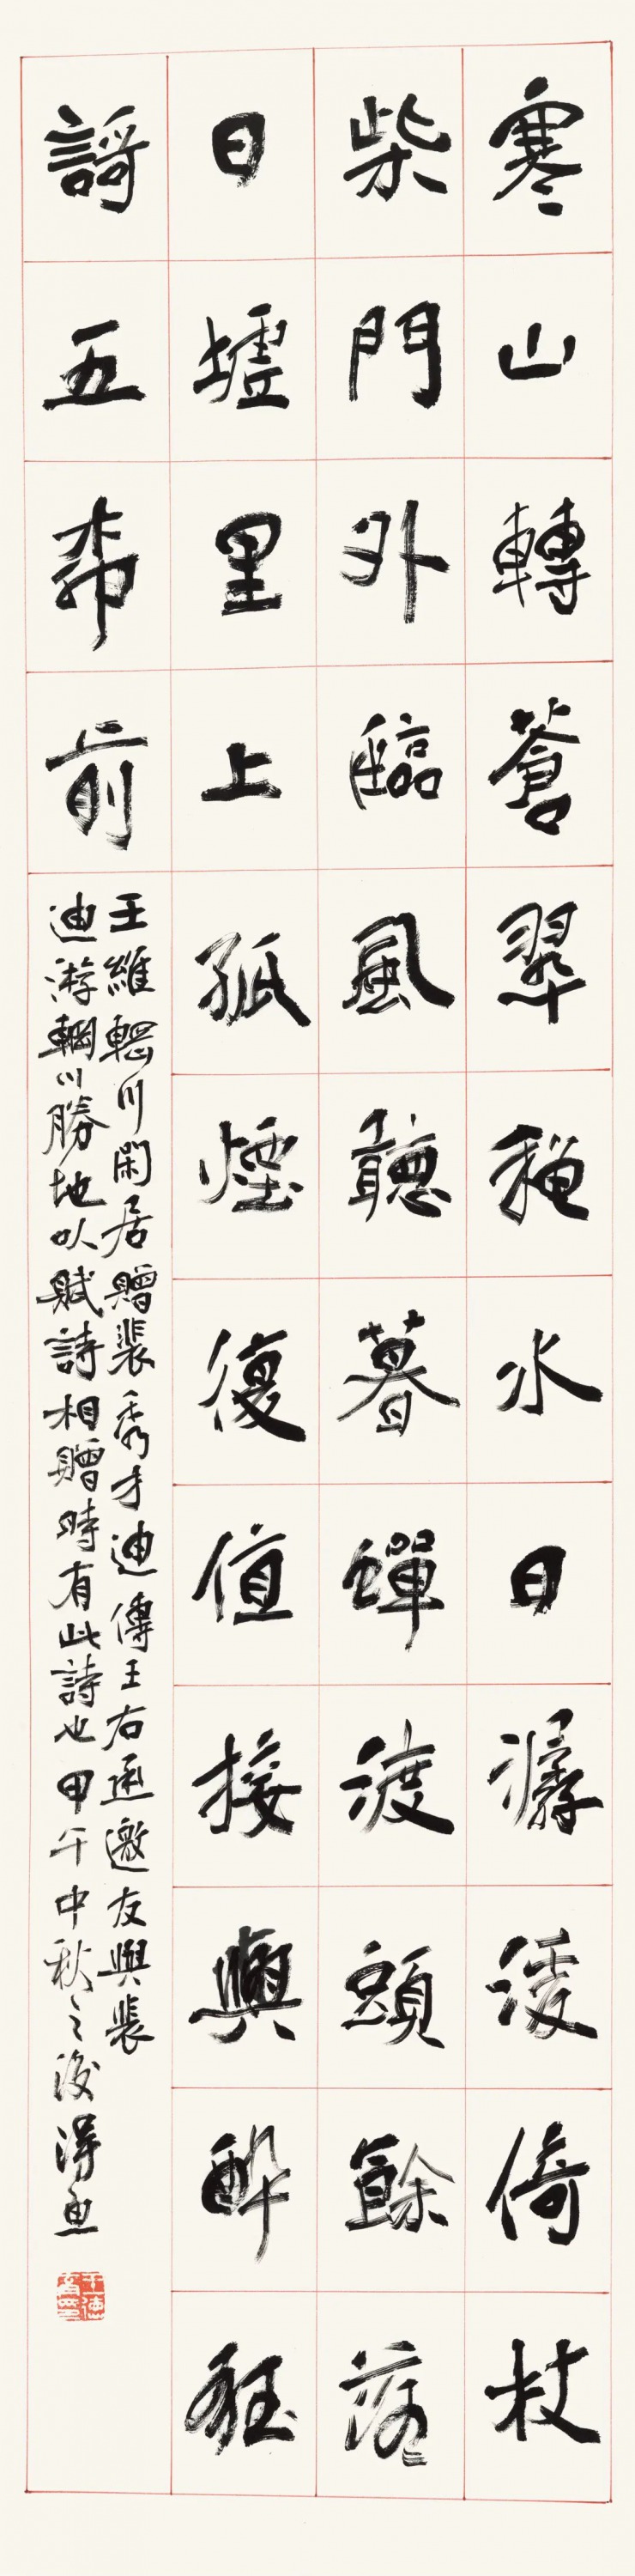 寒山轉蒼翠穐水日潺湲倚杖
柴門外臨風聽暮蟬渡頭餘落
日墟里上孤煙復值接輿醉狂
謌五桺前
王維輞川閑居贈裴秀才迪傳王右丞邀友與裴
迪游輞川勝地以賦詩相贈時有此詩也甲午中秋之後得魚